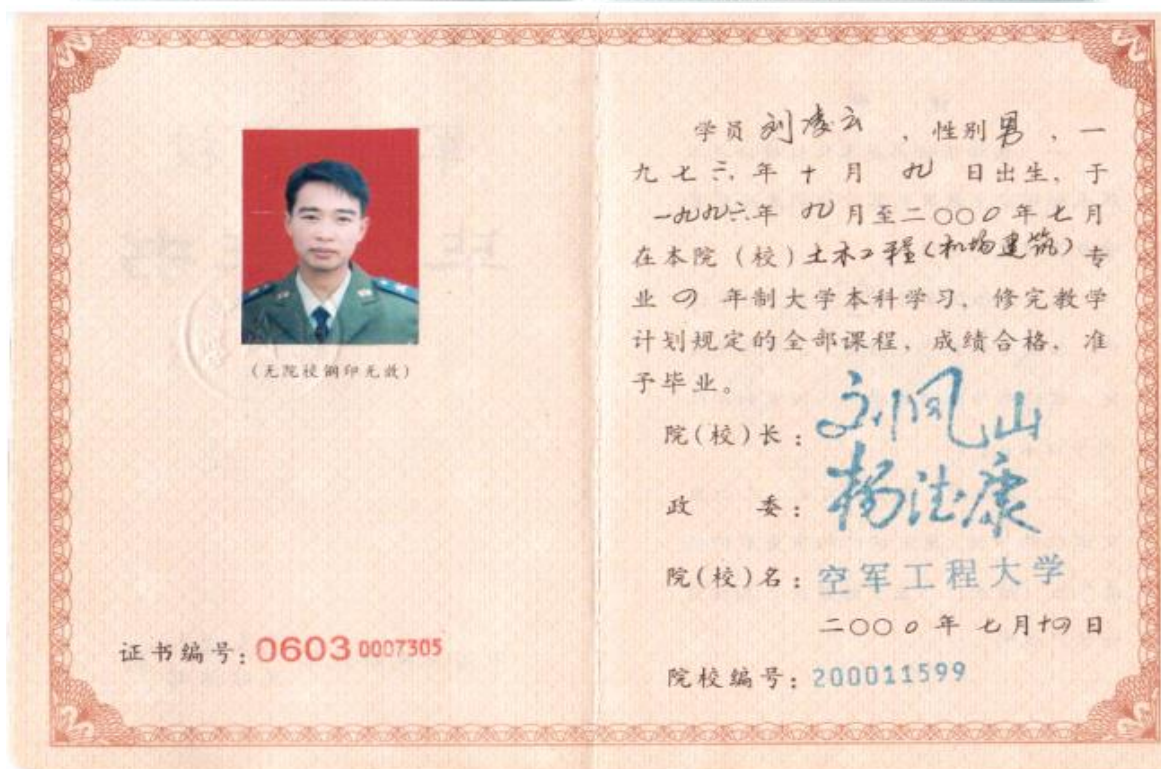 (无院校钢印无效)
证书编号:0603 0007305
学员 刘凌云 ,性别男,一
九七六年十月 九 日出生,于
一九九六年 九月至二〇〇〇年七月
在本院(校)土木工程(机场建筑)专
业 四 年制大学本科学习,修完教学
计划规定的全部课程,成绩合格,准
予毕业。
院(校)长:刘凤山
政 委:杨德康
院(校)名:空军工程大学
二〇〇〇年七月十四日
院校编号:200011599